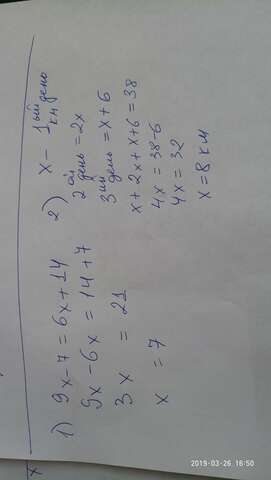 x
1) 9x-7=6x+14
9x-6x=14+7
3x = 21
x = 7
2) x - 1ый день км
2ой день = 2x
3ий день = x+6
x+2x+x+6=38
4x=38-6
4x=32
x=8 км
2019-03-26 16:50